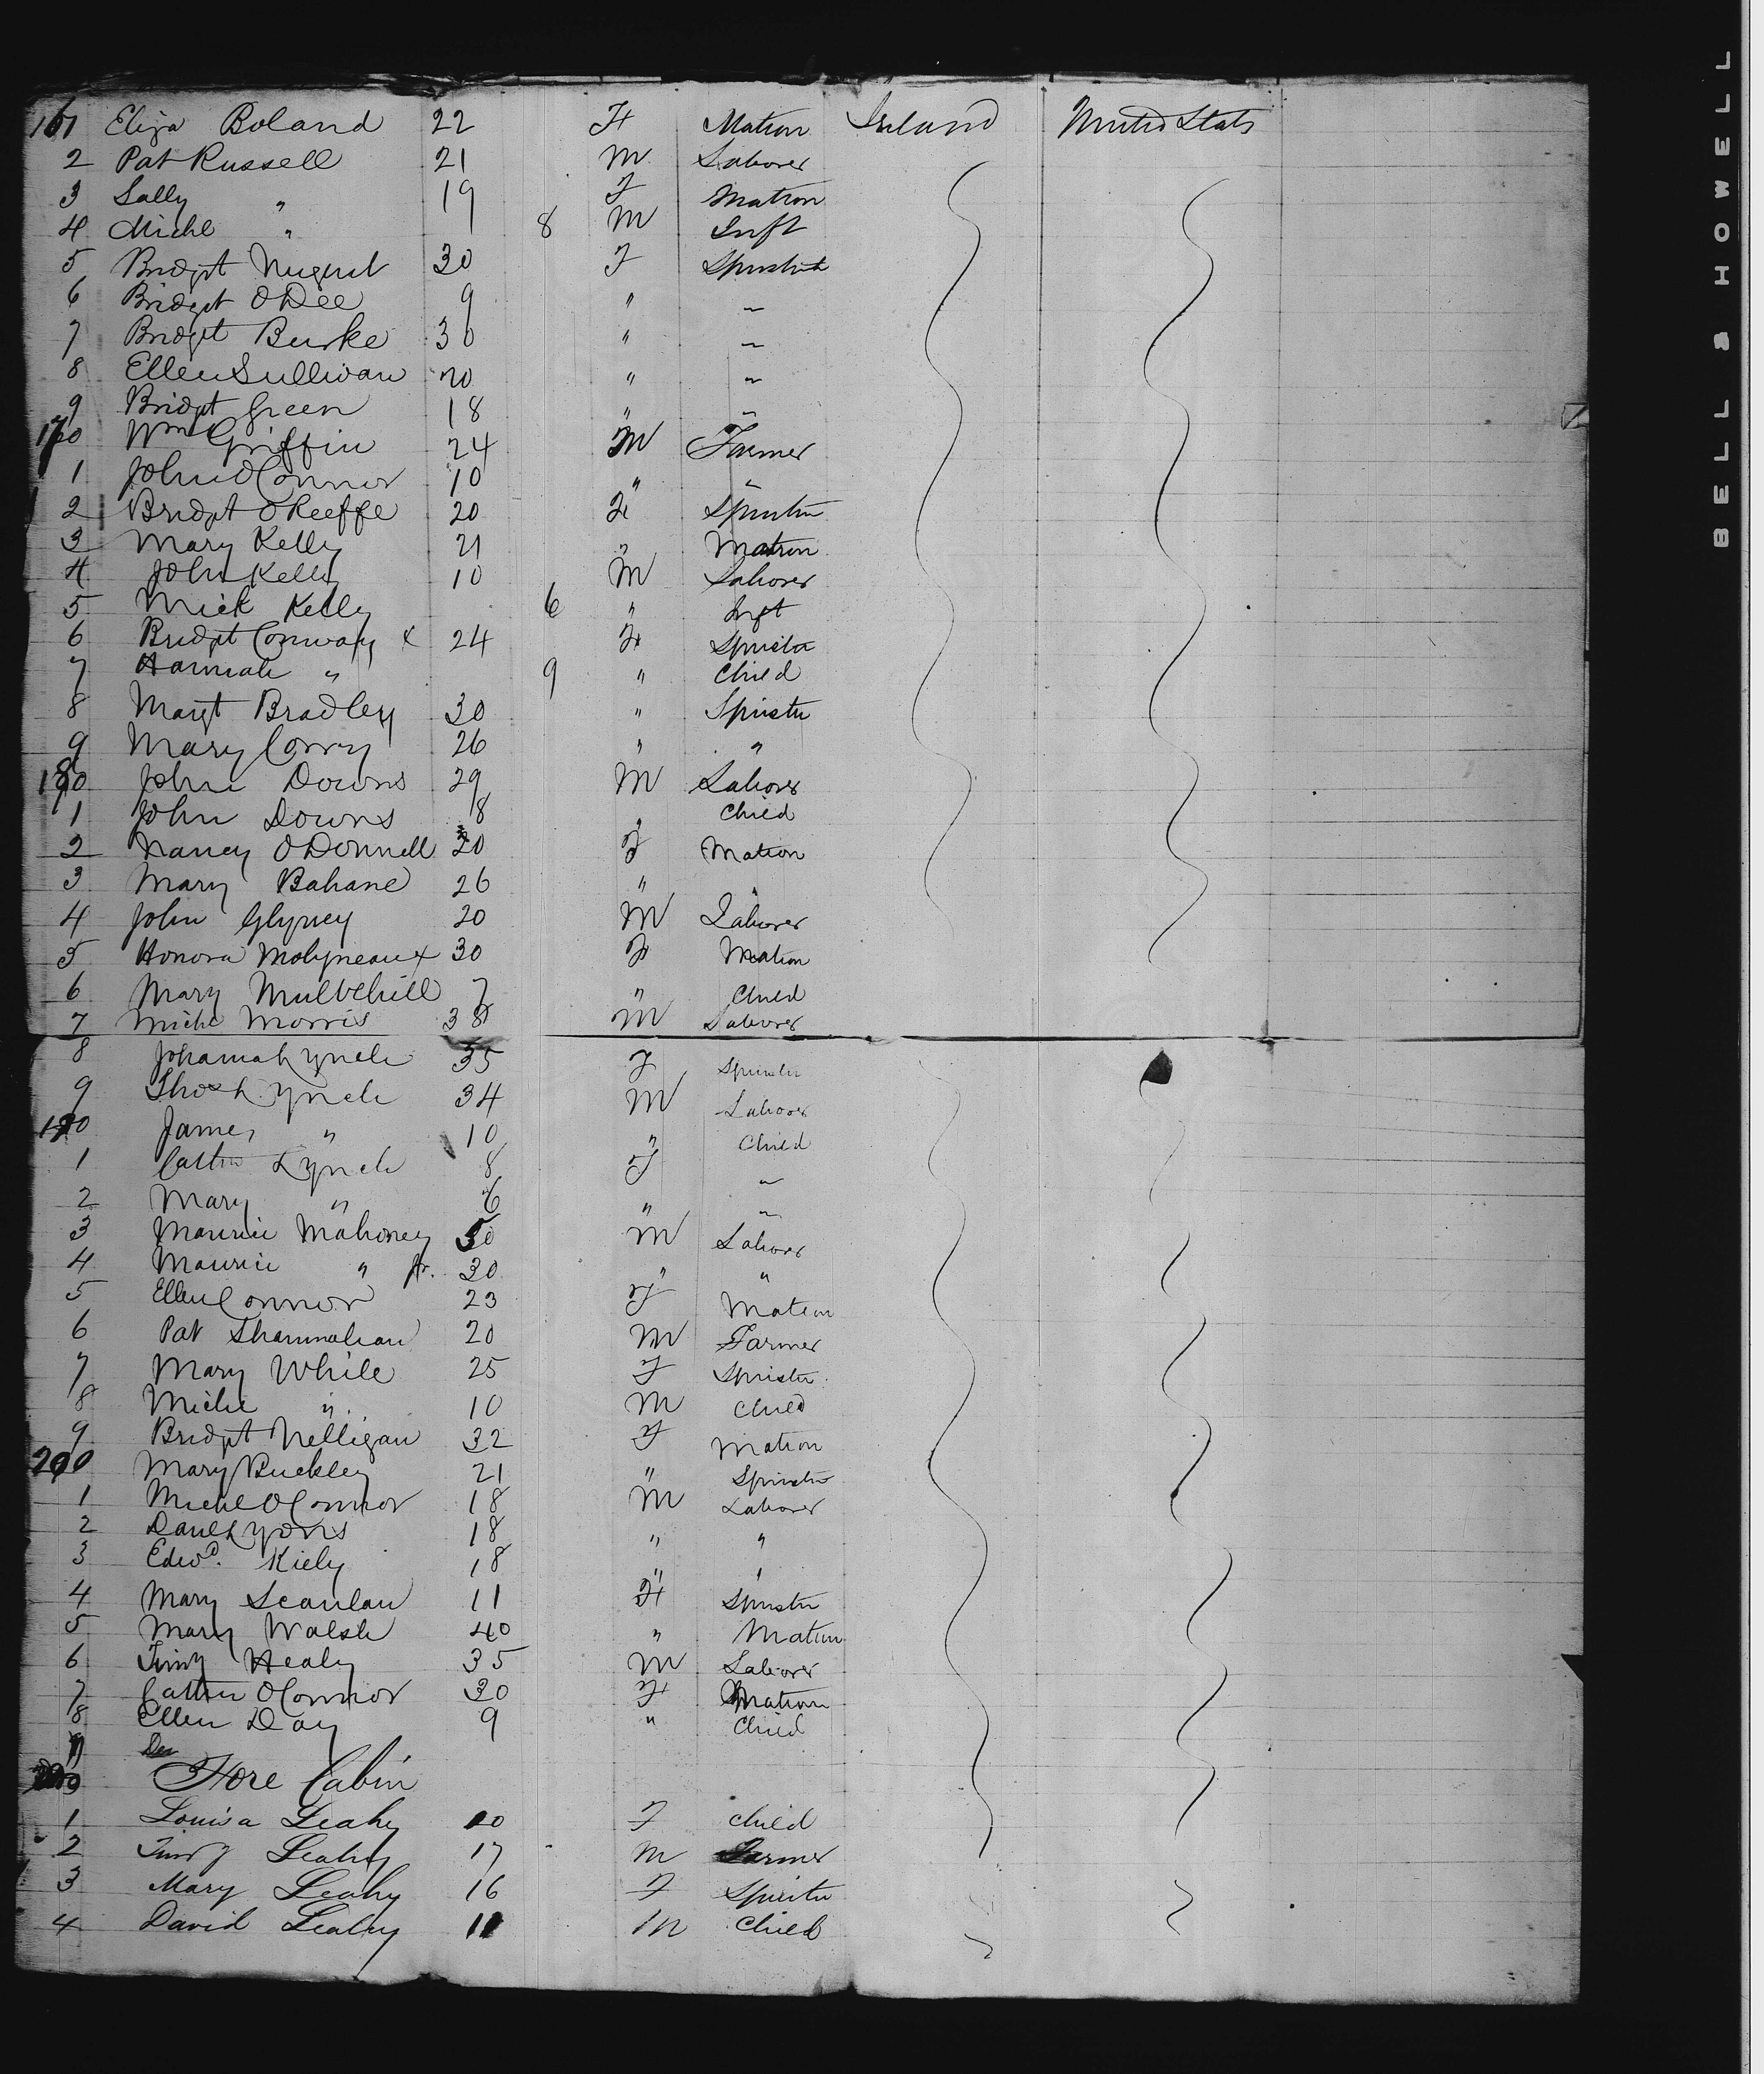 161 Eliza Boland 22 F Matron Ireland United States
2 Pat Russell 21 M Laborer
3 Sally " 19 F Matron
4 Michl " 8 M Inft
5 Bridgt Nugent 30 F Spinster
6 Bridget O'Dee 9 " ~
7 Bridget Burke 30 " ~
8 Ellen Sullivan 20 " ~
9 Bridgt Green 18 " ~
170 Wm Griffin 24 M Farmer
1 John O'Connor 10 " "
2 Bridgt O'Keeffe 20 F Spinster
3 Mary Kelly 21 " Matron
4 John Kelly 10 M Laborer
5 Mick Kelly 6 " Inft
6 Bridgt Conway x 24 F Spinster
7 Hannah " 9 " Child
8 Margt Bradley 30 " Spinster
9 Mary Corry 26 " "
180 John Downs 29 M Laborer
1 John Downs 8 " Child
2 Nancy O'Donnell 20 F Matron
3 Mary Bahane 26 " "
4 John Glynney 20 M Laborer
5 Honora Molyneaux 30 F Matron
6 Mary Mulvehill 7 " Child
7 Michl Morris 38 M Laborer
8 Johannah Lynch 35 F Spinster
9 Thos Lynch 34 M Laborer
190 James " 10 " Child
1 Cathn Lynch 8 F ~
2 Mary " 6 " ~
3 Maurice Mahoney 50 M Laborer
4 Maurice " Jr. 20 " "
5 Ellen Connor 23 F Matron
6 Pat Shannahan 20 M Farmer
7 Mary White 25 F Spinster
8 Michl " 10 M Child
9 Bridgt Nelligan 32 F Matron
200 Mary Buckley 21 " Spinster
1 Michl O'Connor 18 M Laborer
2 Danl Lyons 18 " "
3 Edwd. Kiely 18 " "
4 Mary Scanlan 11 F Spinster
5 Mary Walsh 40 " Matron
6 Timy Healy 35 M Laborer
7 Cathn O'Connor 30 F Matron
8 Ellen Day 9 " Child
9
Fore Cabin
1 Louisa Leahy 10 F Child
2 Timy Leahy 17 M Farmer
3 Mary Leahy 16 F Spinster
4 David Leahy 11 M Child
BELL & HOWELL